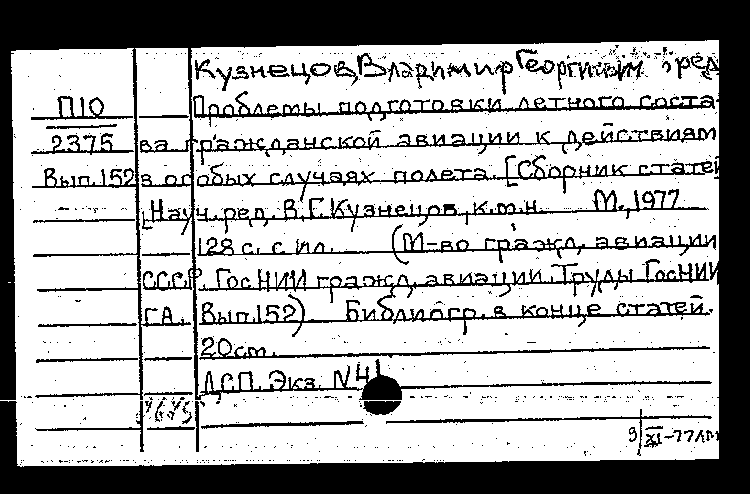 Кузнецов, Владимир Георгиевич, ред
П10 Проблемы подготовки летного соста-
2375 ва гражданской авиации к действиям
Вып.152 в особых случаях полета. [Сборник статей
[Науч. ред. В.Г. Кузнецов, к.т.н. М., 1977
128 с. с ил. (М-во гражд. авиации
СССР. ГосНИИ гражд. авиации. Труды ГосНИИ
ГА. Вып.152). Библиогр. в конце статей.
20 см.
ДСП. Экз. N41
9/XI-77